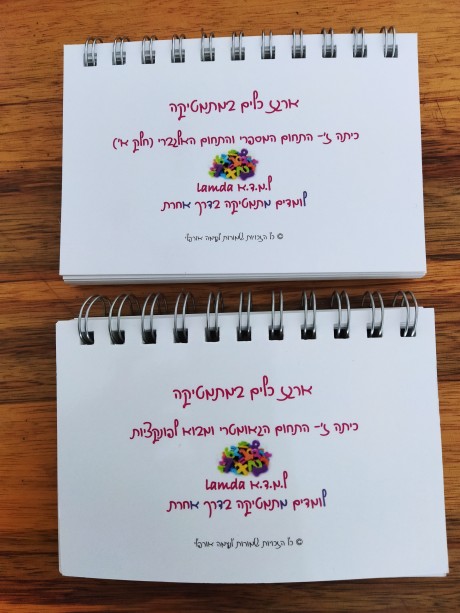 ארגז כלים במתמטיקה
כיתה ז'- התחום המספרי והתחום האלגברי (חלק א')
ל.מ.ד.א Lamda
לומדים מתמטיקה בדרך אחרת
© כל הזכויות שמורות לנעמה אורפלי
ארגז כלים במתמטיקה
כיתה ז'- התחום הגאומטרי ומבוא לפונקציות
ל.מ.ד.א Lamda
לומדים מתמטיקה בדרך אחרת
© כל הזכויות שמורות לנעמה אורפלי